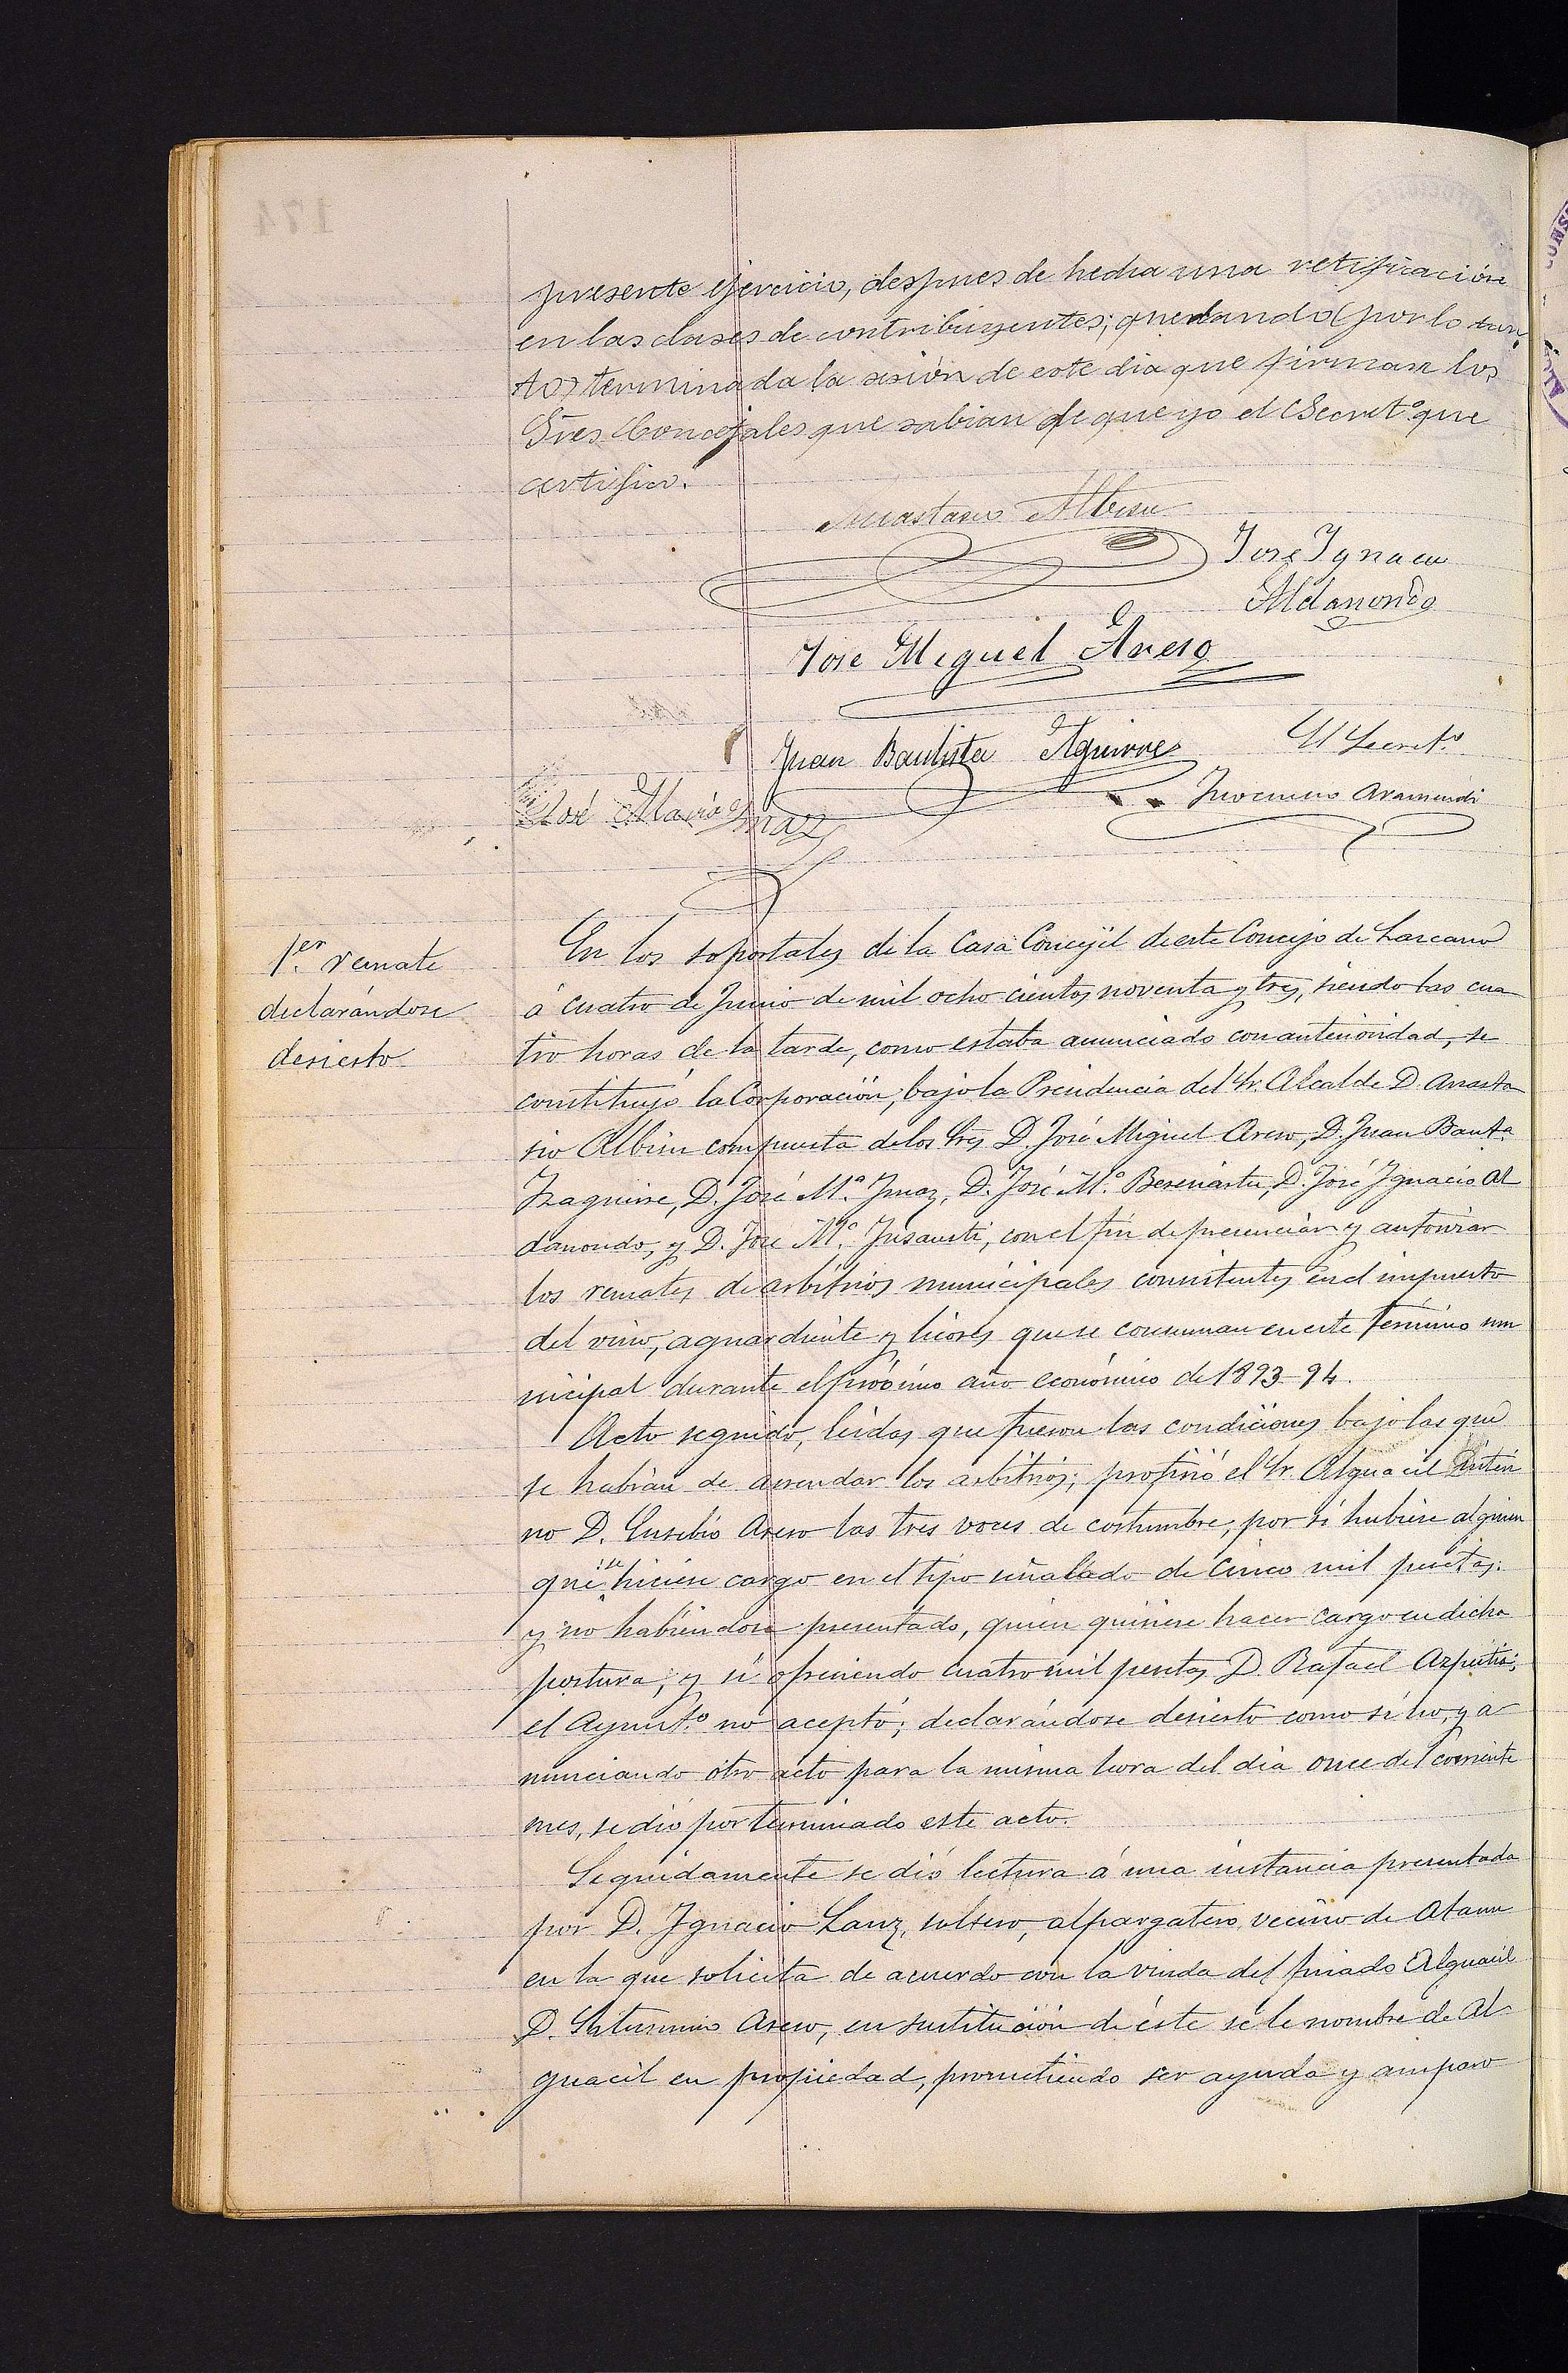 presente ejercicio, despues de hecha una retificación
en las clases de contribuyentes; quedando (por lo tan
to) terminada la sesión de este dia que firman los
Sres Concejales que sabian de que yo el Secretº que
certifico.
Anastasio Albisu
José Ignacio
Aldanondo
Jose Miguel Areso
Juan Bautista Aguirre
El Secretº
Inocencio Aramendi
José Maria Imaz
1er remate
declarándose
desierto
En los soportales de la Casa Concejil de este Concejo de Lazcano
á cuatro de Junio de mil ocho cientos noventa y tres, siendo las cua
tro horas de la tarde, como estaba anunciado con anterioridad, se
constituyó la Corporación, bajo la Presidencia del Sr. Alcalde D. Anasta
sio Albisu compuesta de los Sres D. José Miguel Areso, D. Juan Bautª
Izaguirre, D. José Mª Imaz, D. José Mª Bereciartu, D. José Ignacio Al
danondo, y D. José Mª Insausti, con el fin de presenciar y autorizar
los remates de arbitrios municipales consistentes en el impuesto
del vino, aguardiente y licores que se consuman en este término mu
nicipal durante el próximo año económico de 1893-94.
Acto seguido, leidas que fueron las condiciones bajo las que
se habrian de arrendar los arbitrios; profirió el Sr. Alguacil Interi
no D. Eusebio Areso las tres voces de costumbre, por si hubiese alguien
que se hiciese cargo en el tipo señalado de cinco mil pesetas:
y no habiendose presentado, quien quisiese hacer cargo en dicha
postura, y si ofreciendo cuatro mil pesetas D. Rafael Azpeitia;
el Ayuntº no aceptó; declarándose desierto como si no, y a
nunciando otro acto para la misma hora del dia once del corriente
mes, se dió por terminado este acto.
Seguidamente se dió lectura á una instancia presentada
por D. Ignacio Lanz, soltero, alpargatero, vecino de Ataun
en la que solicita de acuerdo con la viuda del finado Alguacil
D. Saturnino Areso, en sustitución de éste se le nombre de Al-
guacil en propiedad, prometiendo ser ayuda y amparo